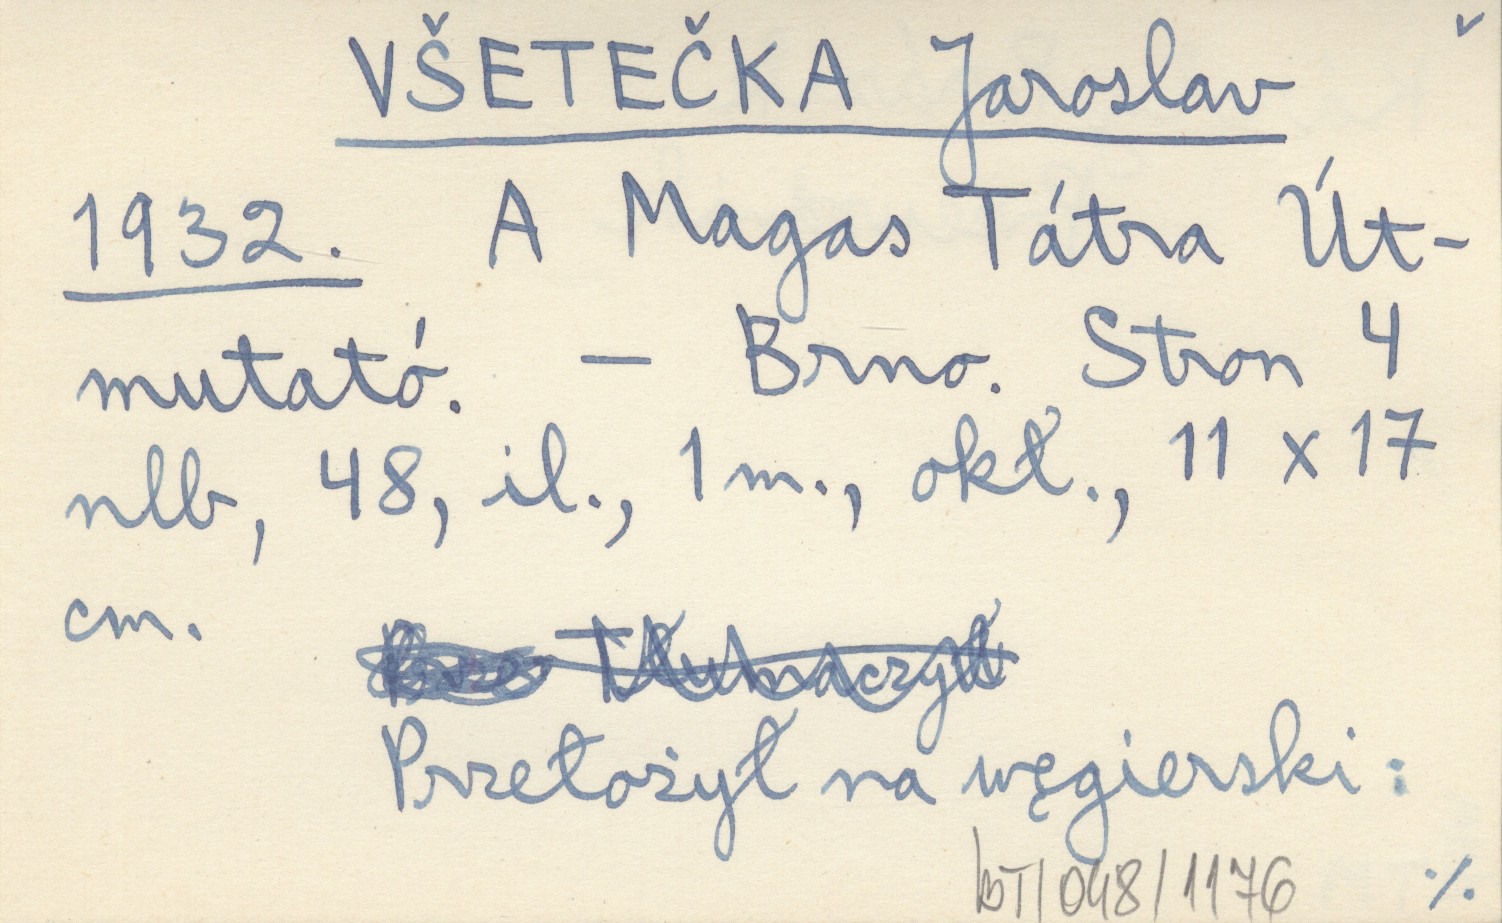 VŠETEČKA Jaroslav
1932. A Magas Tátra Út-
mutató. — Brno. Stron 4
nlb, 48, il., 1 m., okł., 11 x 17
cm.
Tłumaczył
Przełożył na węgierski:
bT/048/1176 ./.